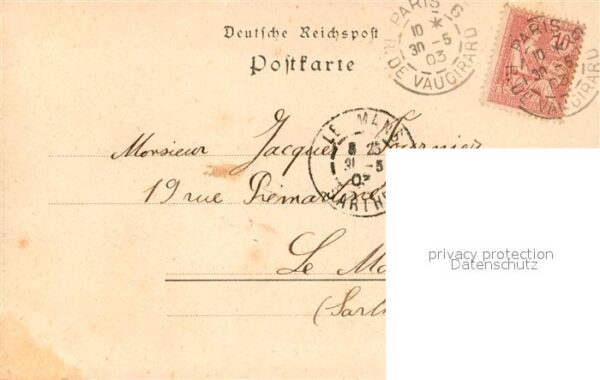 Deutsche Reichspost
Postkarte
PARIS 6
10 *
30 -5
03
R. DE VAUGIRARD
PARIS 6
10 *
30
R. DE VAUGIRARD
10
LE MANS
8 25
31 -5
03
SARTHE
Monsieur Jacques Fournier
19 rue Prémartine
Le Ma
(Sart
privacy protection
Datenschutz